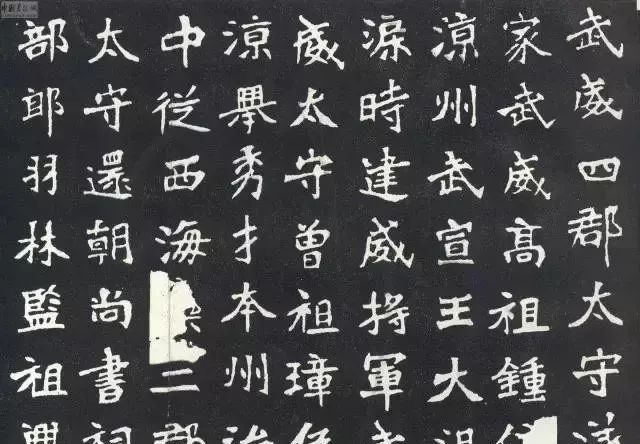 武威四郡太守
家武威高祖鍾
涼州武宣王大
渠時建威將軍
威太守曾祖璋
涼舉秀才本州治
中從西海二郡
太守還朝尚書祠
部郎羽林監祖興